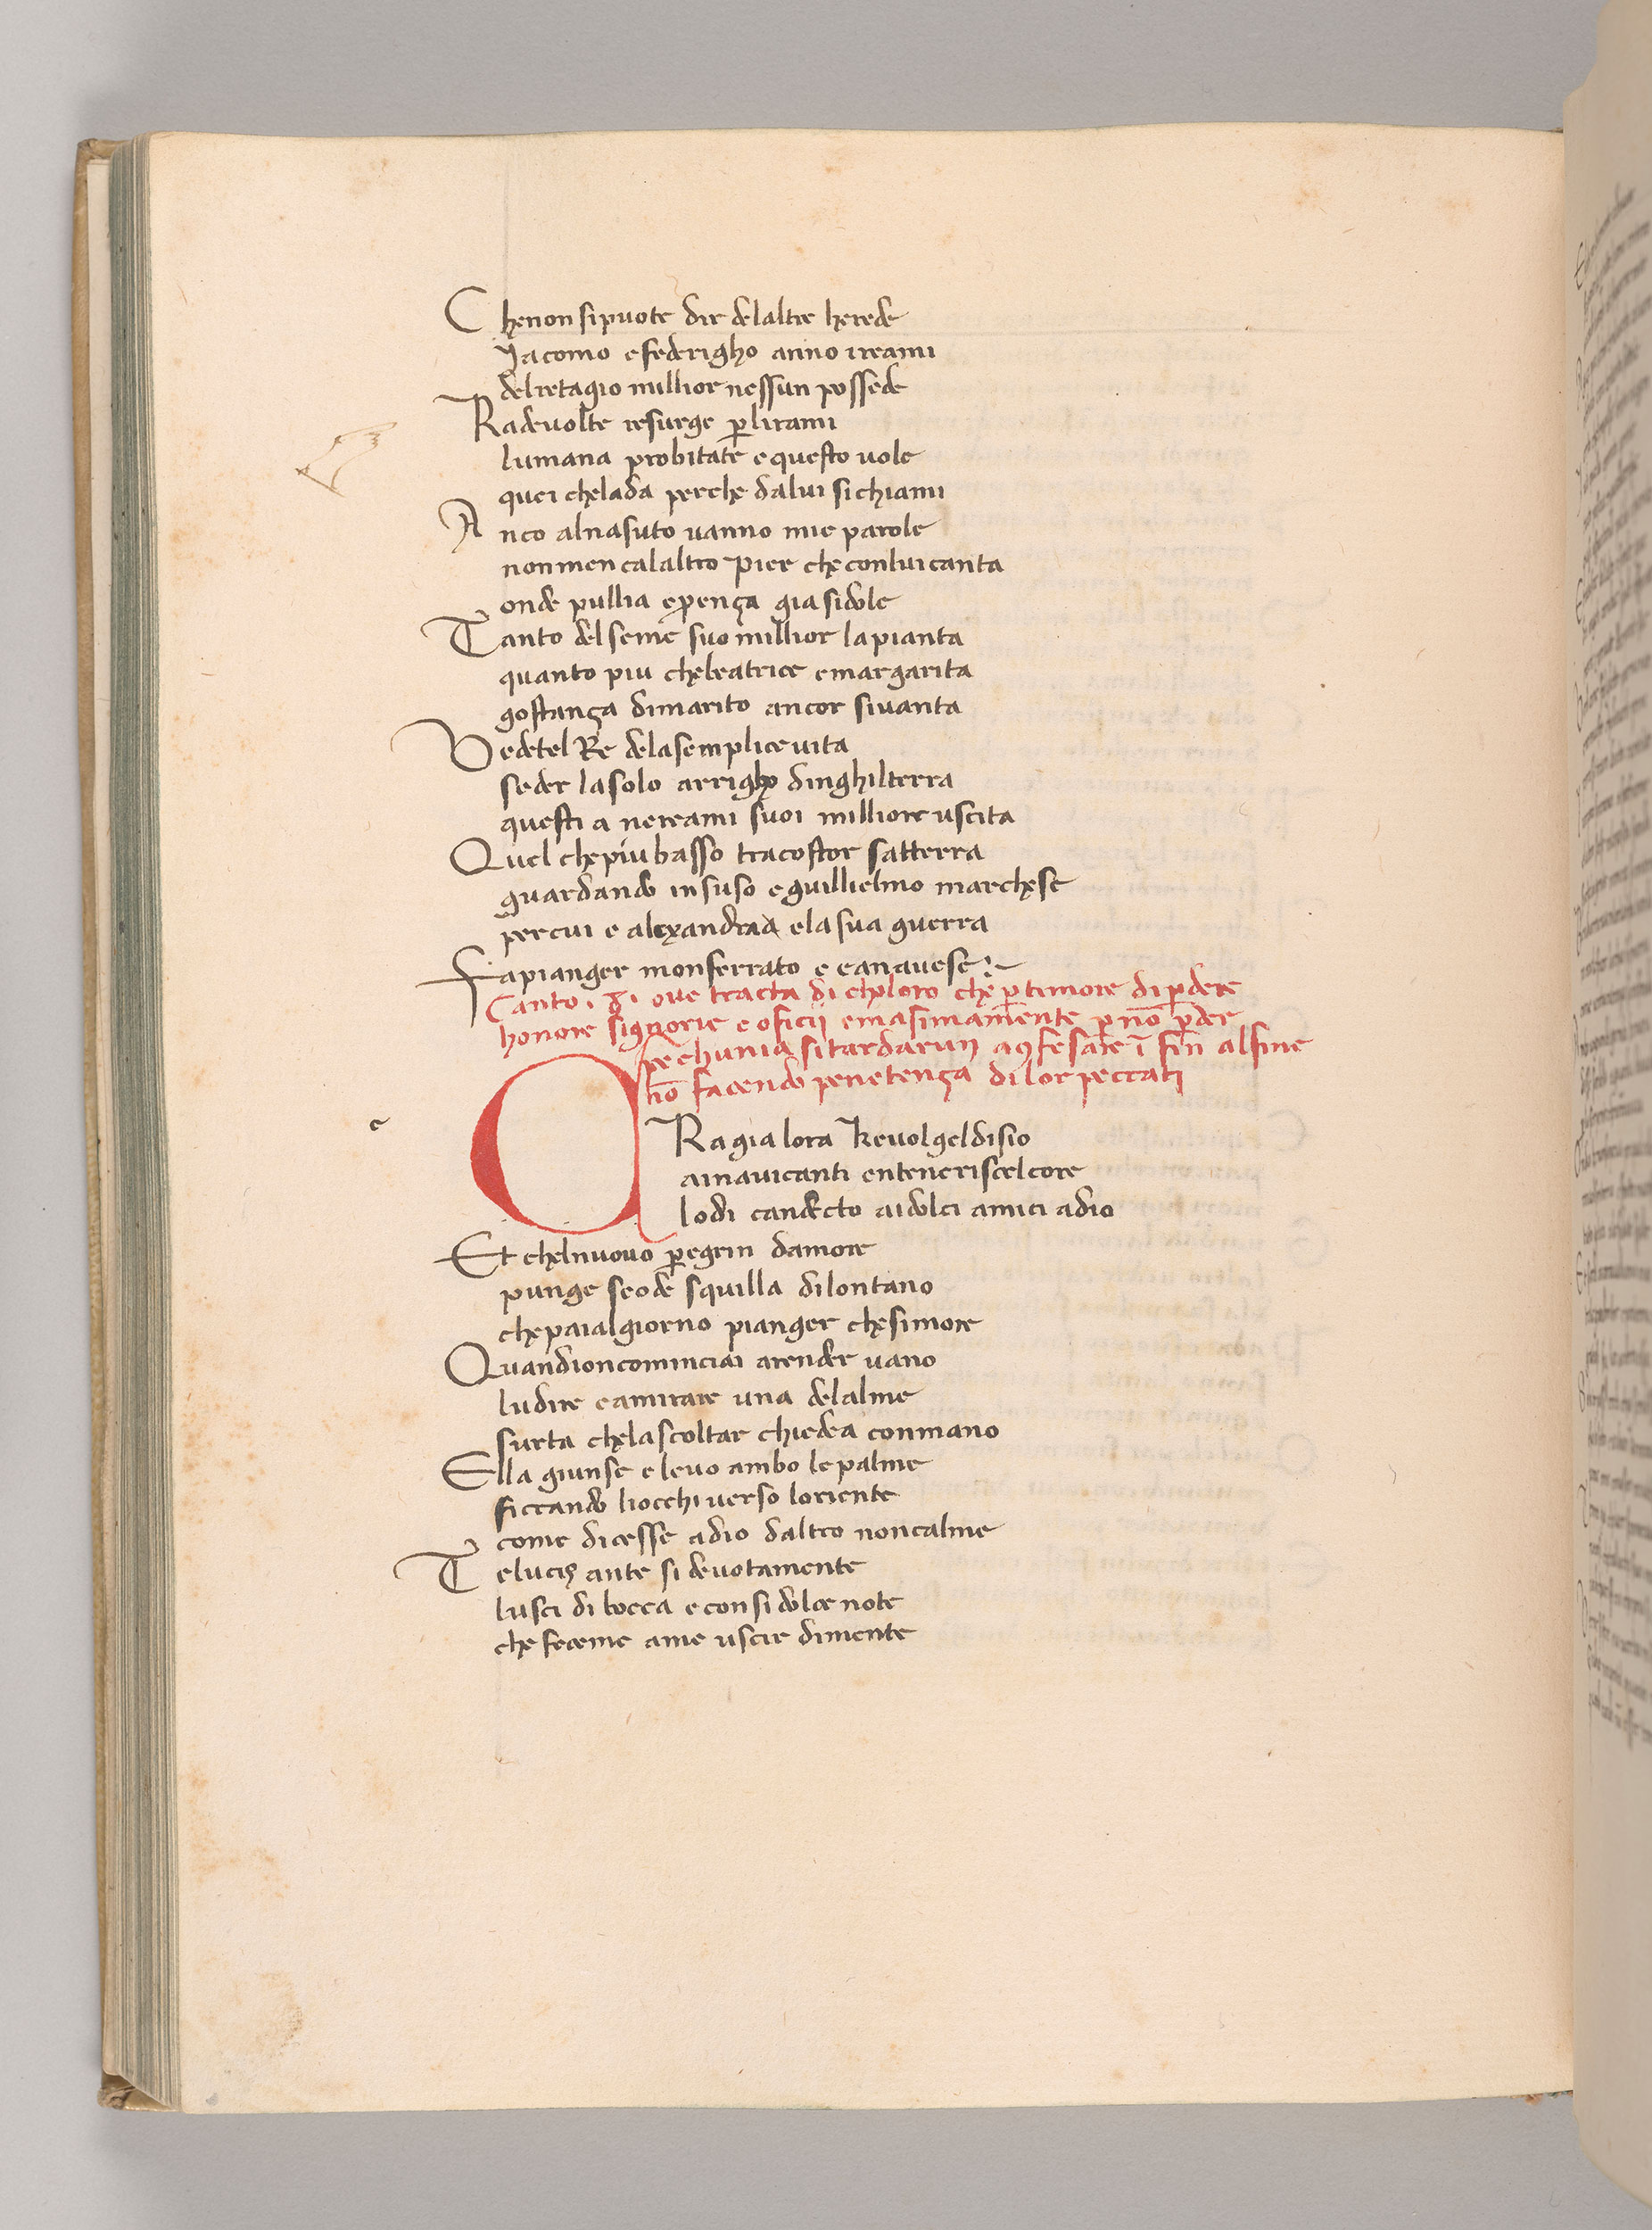 Che non si puote dir de laltre herede
Jacomo e federigho anno ireami
del retagio millior nessun possede
Rade uolte resurge p lirami
lumana probitate e questo uole
quei che la da perche da lui si chiami
Anco al nasuto uanno mie parole
non men cal altro pier che con lui canta
onde pullia e prença gia si dole
Tanto del seme suo millior la pianta
quanto piu che beatrice e margarita
gostança di marito ancor si uanta
Vedetel Re de la semplice uita
seder la solo arrigho dinghilterra
questi a ne reami suoi milliore uscita
Quel che piu basso tra costor satterra
guardando in suso e guillielmo marchese
per cui e alexandria e la sua guerra
Fa pianger monferrato e canauese
Canto . 8 . oue tracta di choloro che p timore di pdere
honore signorie e oficii e masimamente p nō pder
pechunia si tardarun a 9fesare ī fin al fine
nō facendo penetença di lor peccati
ORa gia lora ke uolgel disio
ai nauicanti enteneriscel core
lo di can decto ai dolci amici adio
Et chel nuouo pegrin damore
punge se ode squilla di lontano
che paial giorno pianger che si more
Quandio ncominciai a render uano
ludire e a mirare una de lalme
surta che lascoltar chiedea con mano
Ella giunse e leuo ambo le palme
ficcando liocchi uerso loriente
come dicesse a dio daltro non calme
Te lucis ante si deuotamente
lusci di bocca e con si dolce note
che fece me a me uscir di mente